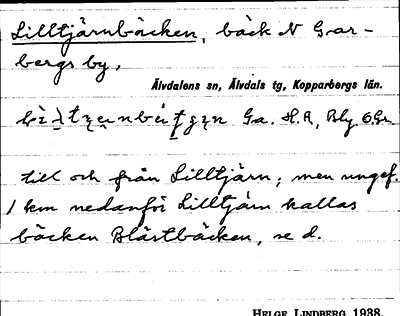 Lilltjärnbäcken, bäck N Gar-
bergs by,
Älvdalens sn, Älvdals tg, Kopparbergs län.
Ga. H.A, Bly. O.Gr.
till och från Lilltjärn; men ungef.
1 km nedanför Lilltjärn kallas
bäcken Blästbäcken, se d.
HELGE LINDBERG 1938.